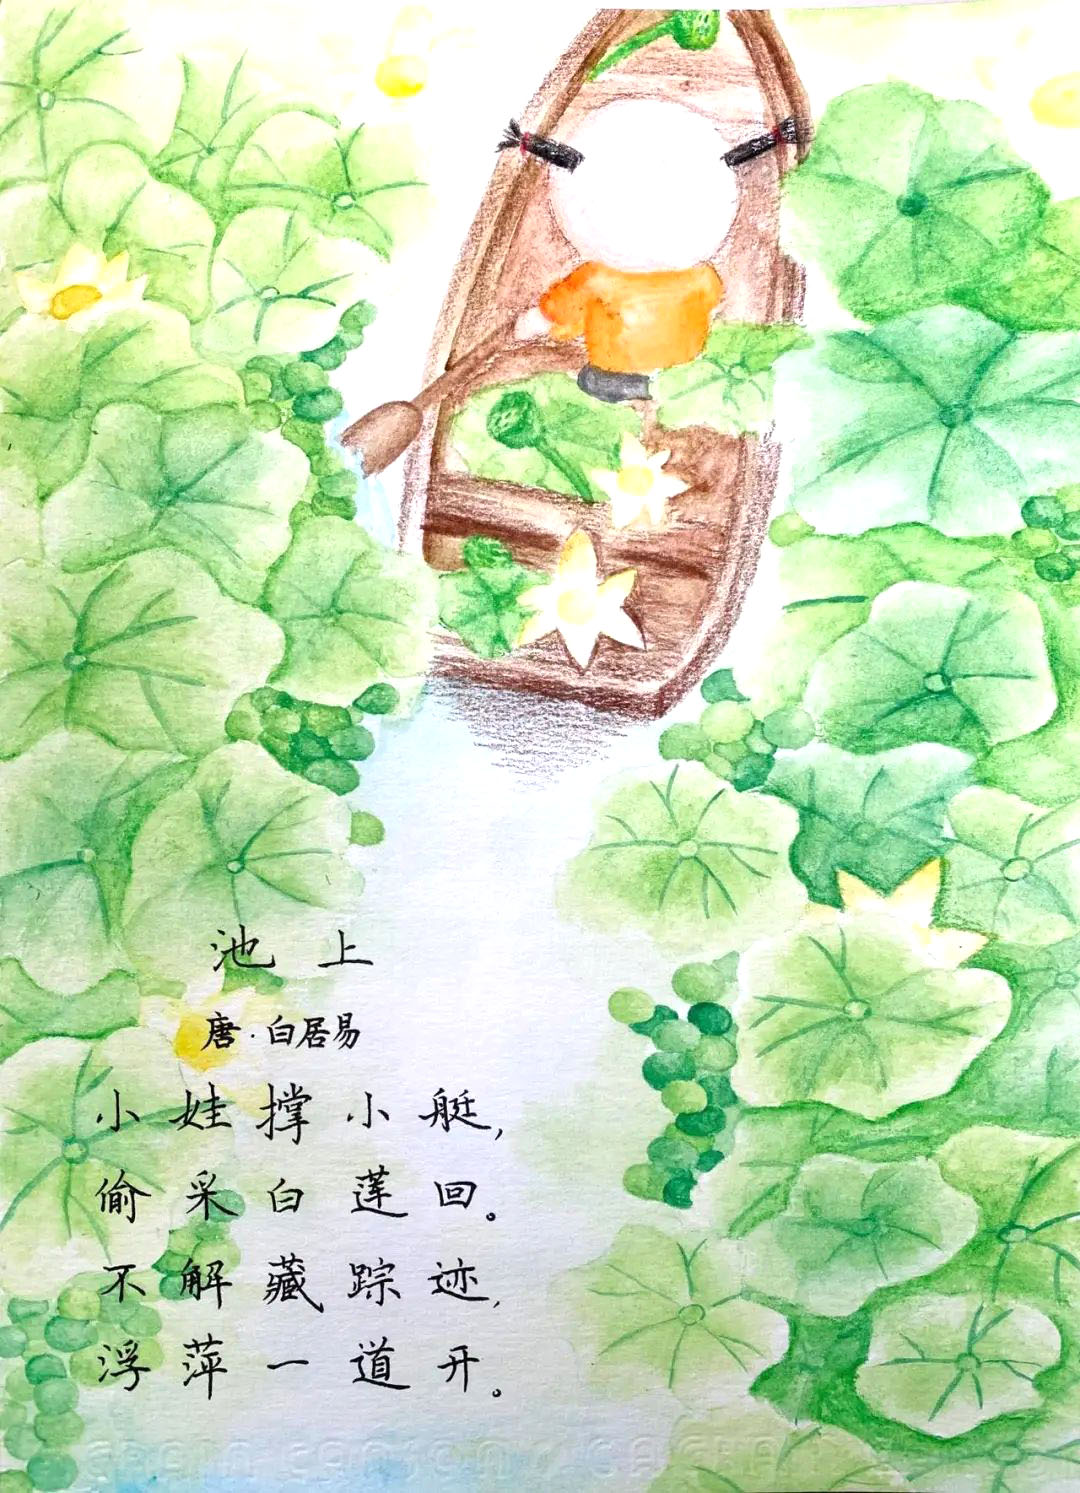 池上
唐·白居易
小娃撑小艇，
偷采白莲回。
不解藏踪迹，
浮萍一道开。